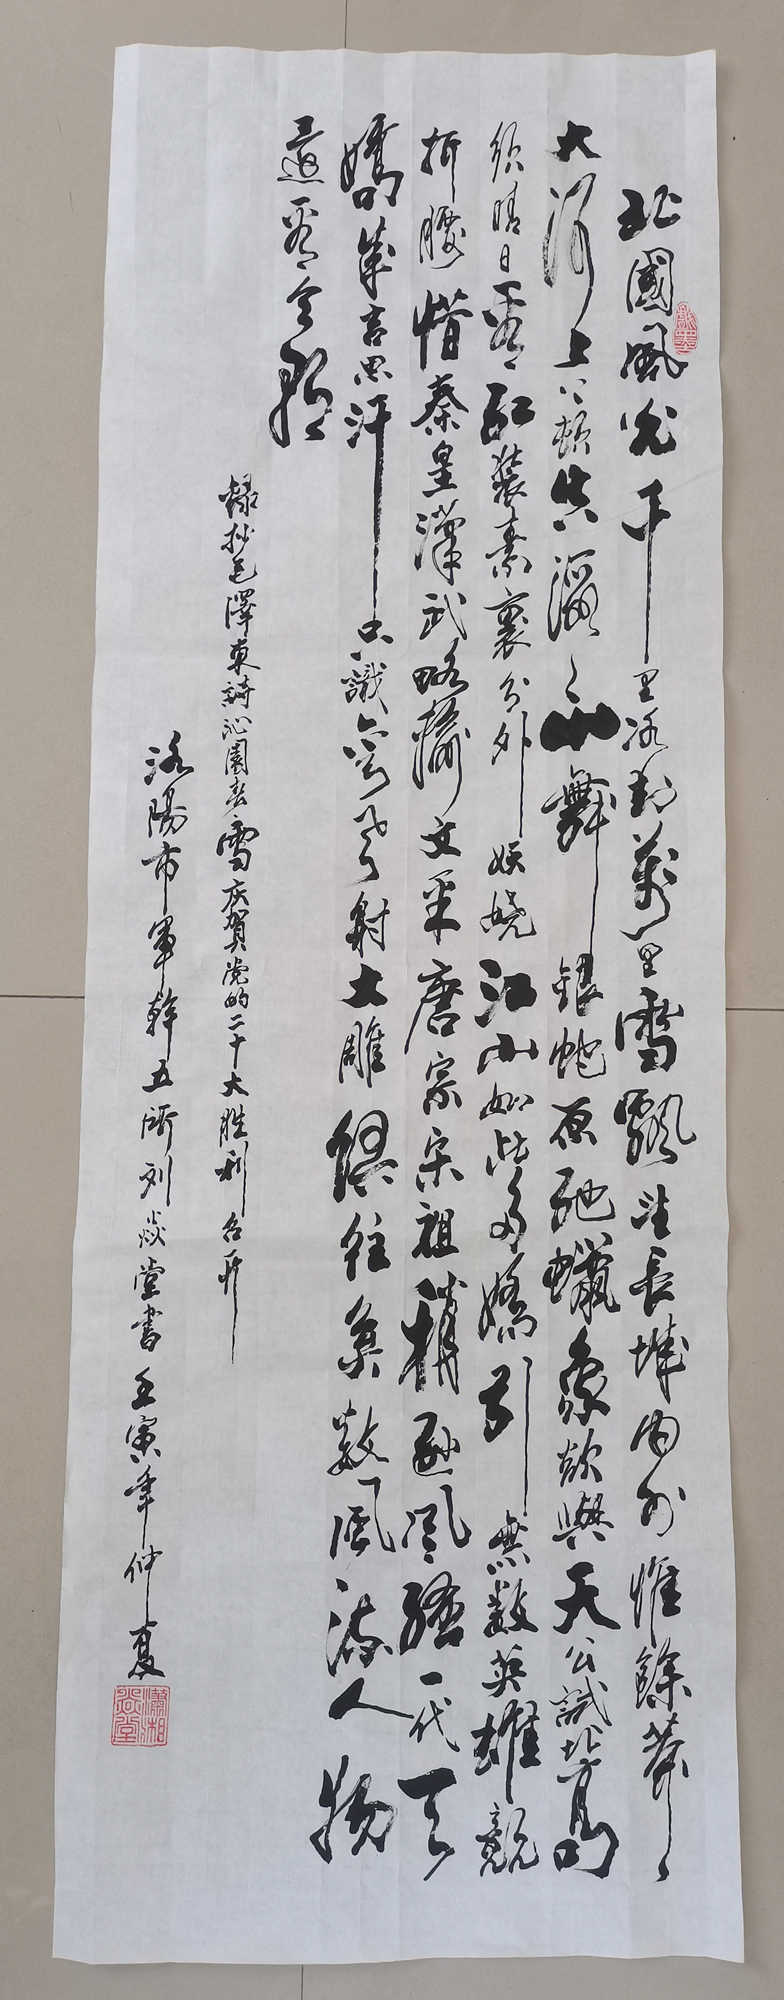 北國風光千里冰封萬里雪飄望長城内外惟餘莽〻
大河上下頓失滔〻山舞銀蛇原馳蠟象欲與天公試比高
須晴日看紅裝素裹分外妖嬈江山如此多嬌引無數英雄競
折腰惜秦皇漢武略輸文采唐宗宋祖稍遜風騷一代天
嬌成吉思汗只識彎弓射大雕俱往矣数風流人物
還看今朝
録抄毛澤東詩沁園春雪庆賀党的二十大胜利召开
洛陽市軍幹五所列焱堂書壬寅年仲夏
瀟湘焱堂